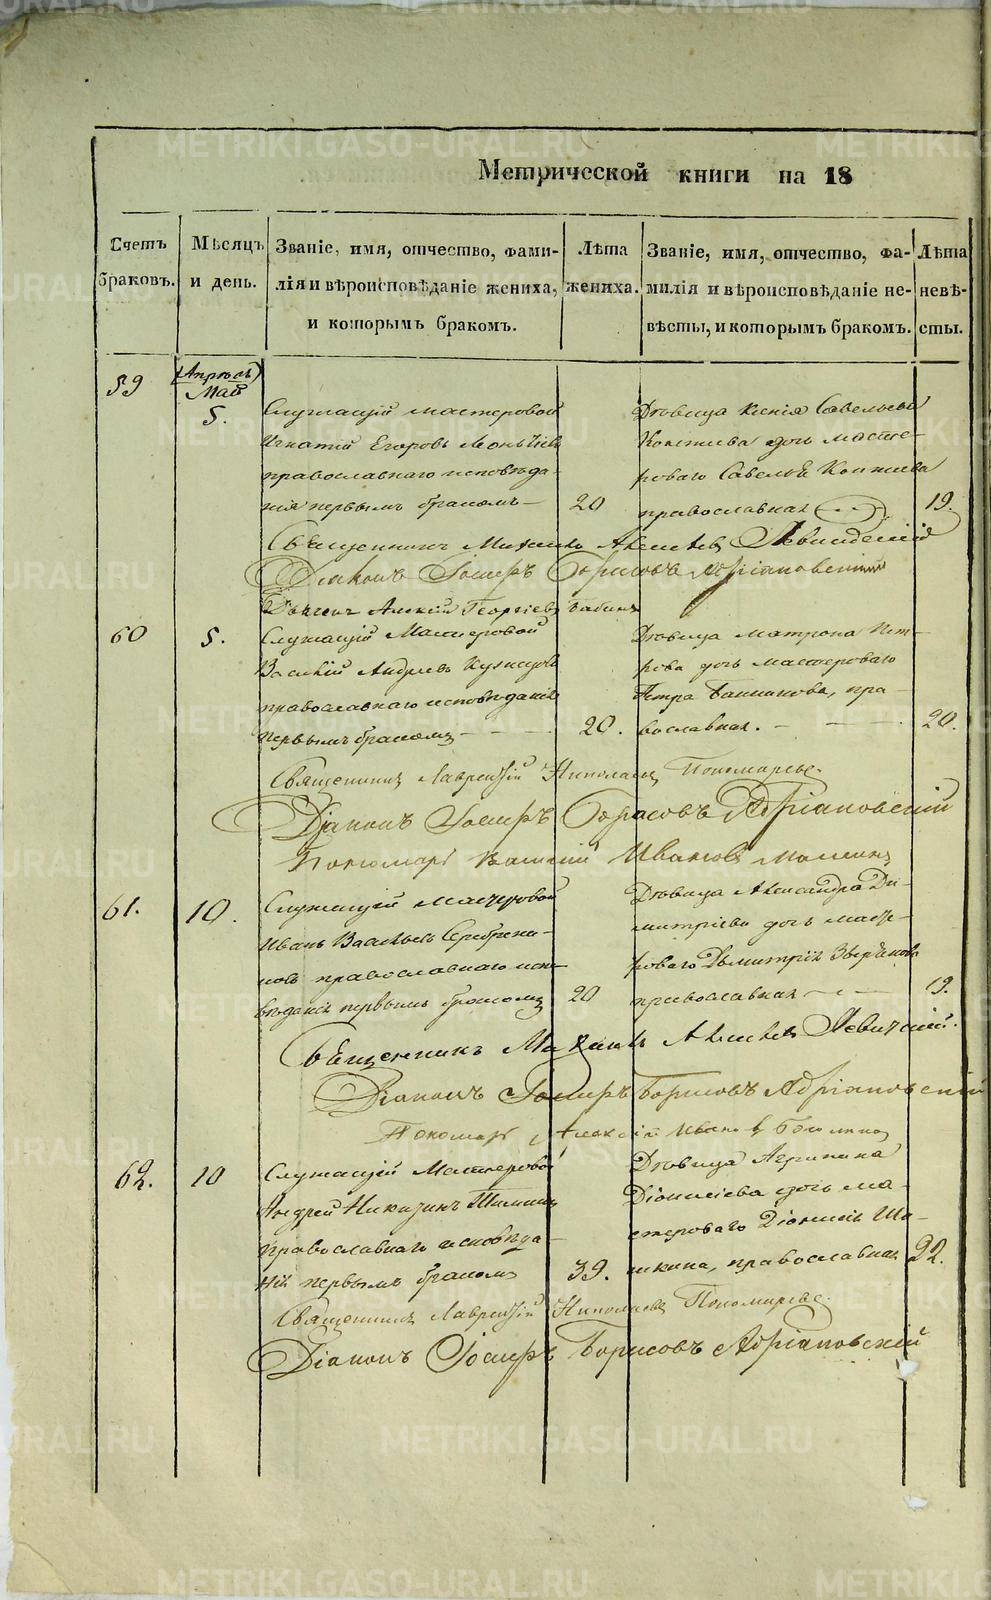 METRIKI.GASO-URAL.RU
Метрической книги на 18
Счетъ браковъ.
Мѣсяцъ и день.
Званіе, имя, отчество, фами-
лія и вѣроисповѣданіе жениха,
и которымъ бракомъ.
Лѣта
жениха.
Званіе, имя, отчество, фа-
милія и вѣроисповѣданіе не-
вѣсты, и которымъ бракомъ.
Лѣта
невѣ-
сты.
59
(Апрѣль)
Май
5.
Служащій мастеровой
Игнатій Егоровъ
православнаго исповѣда-
нія первымъ бракомъ
20
Дѣвица Ксенія Савельева
дочь масте-
роваго Савелья
православная
19.
Священникъ Михаилъ Алексѣевъ
Діаконъ Іосифъ Борисовъ Адріановскій
Дьячекъ Алексій Георгіевъ Бабинъ
60
5.
Служащій Мастеровой
Василій Андреевъ Кузнецовъ
православнаго исповѣданія
первымъ бракомъ
20.
Дѣвица Матрона Пет-
рова дочь мастероваго
Петра Банникова, пра-
вославная.
20.
Священникъ Лаврентій Николаевъ Пономаревъ.
Діаконъ Іосифъ Борисовъ Адріановскій
Пономарь Василій Ивановъ
61.
10.
Служащій Мастеровой
Иванъ Васильевъ Серебрени-
ковъ православнаго испо-
вѣданія первымъ бракомъ
20
Дѣвица Александра Ди-
митріева дочь масте-
роваго Димитрія Звѣрева
православная
19.
Священникъ Михаилъ Алексѣевъ
Діаконъ Іосифъ Борисовъ Адріановскій
Пономарь Алексій Ивановъ
62.
10
Служащій Мастеровой
Андрей Никитинъ
православнаго исповѣда-
нія первымъ бракомъ
39.
Дѣвица Агрипина
Діонисіева дочь ма-
стероваго Діонисія Ша-
шкина, православная
22.
Священникъ Лаврентій Николаевъ Пономаревъ.
Діаконъ Іосифъ Борисовъ Адріановскій